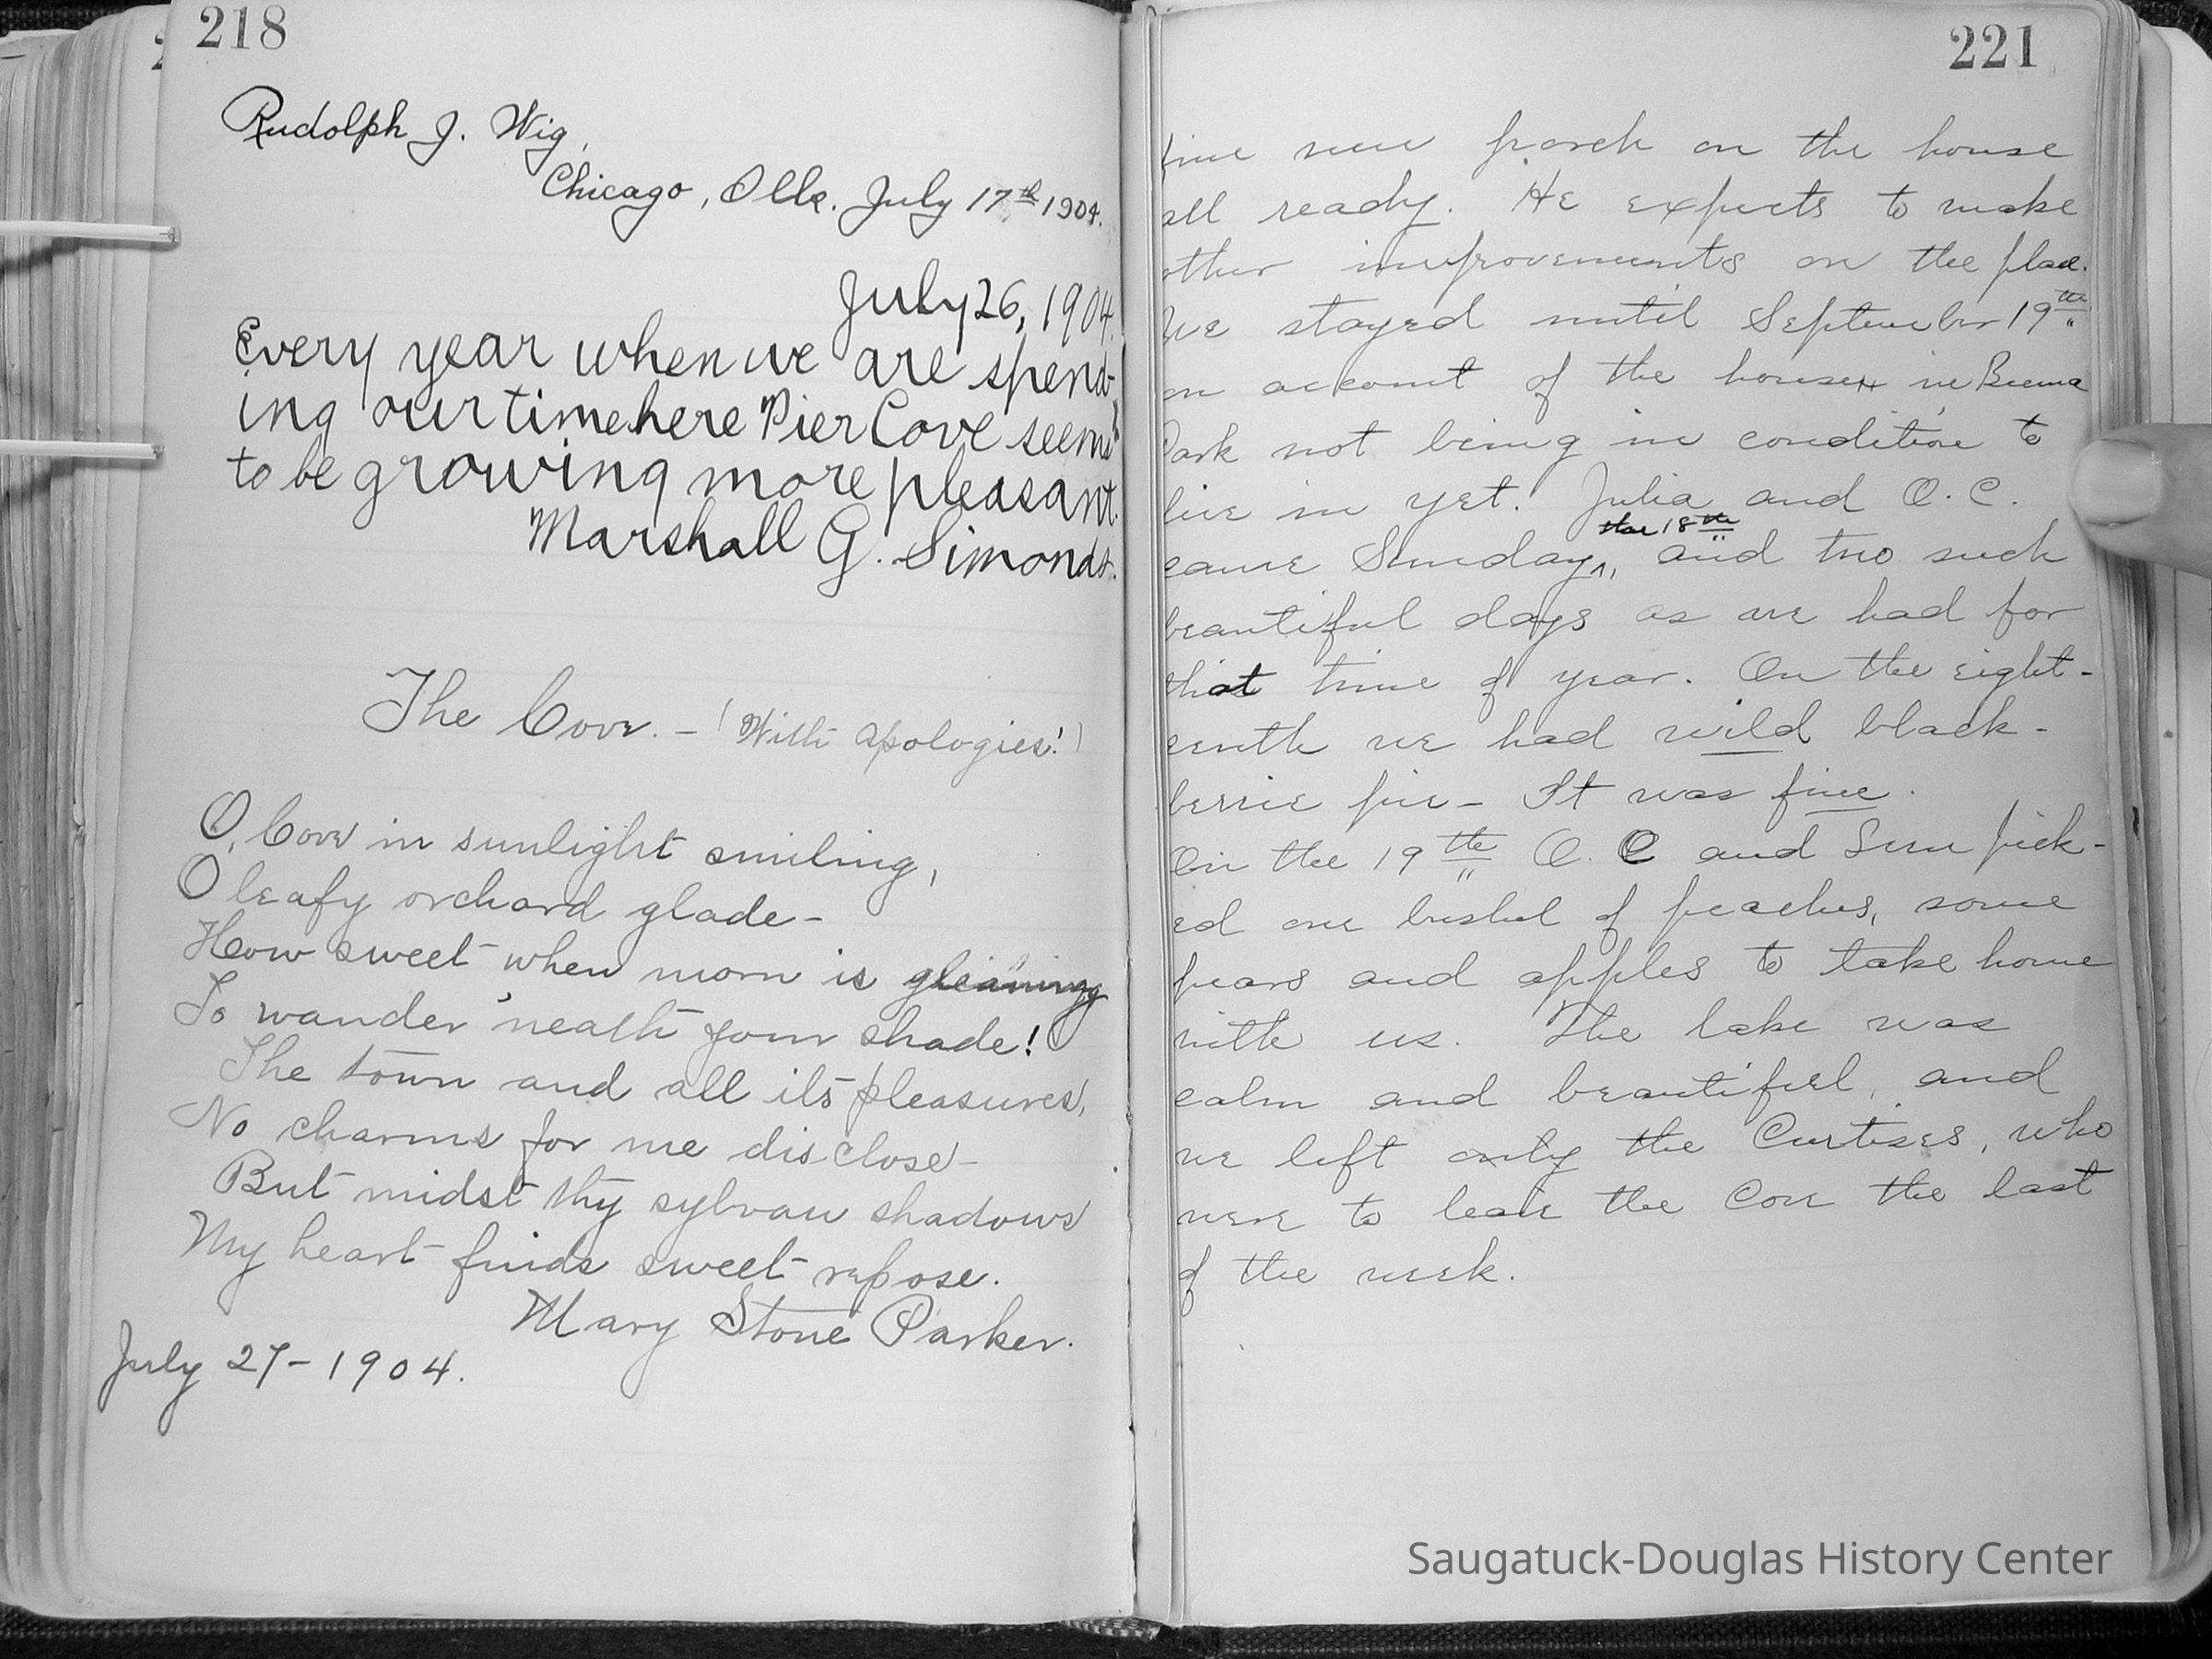 218
Rudolph J. Wig,
Chicago, Ills. July 17th 1904.
July 26, 1904.
Every year when we are spend-
ing our time here Pier Cove seems
to be growing more pleasant.
Marshall G. Simonds.
The Cove. - (With apologies!)
O, Cove in sunlight smiling,
O leafy orchard glade -
How sweet when morn is gleaming
To wander 'neath your shade!
The town and all its pleasures,
No charms for me disclose -
But midst thy sylvan shadows
My heart finds sweet repose.
Mary Stone Parker.
July 27 - 1904.
221
fine new porch on the house
all ready. He expects to make
other improvements on the place.
We stayed until September 19th
on account of the house in Buena
Park not being in condition to
live in yet. Julia and O. C.
the 18th
came Sunday, and two such
beautiful days as we had for
that time of year. On the eight-
eenth we had wild black-
berrie pie - It was fine.
On the 19th O. C and Sum pick-
ed one bushel of peaches, some
pears and apples to take home
with us. The lake was
calm and beautiful, and
we left only the Curtises, who
were to leave the Cove the last
of the week.
Saugatuck-Douglas History Center